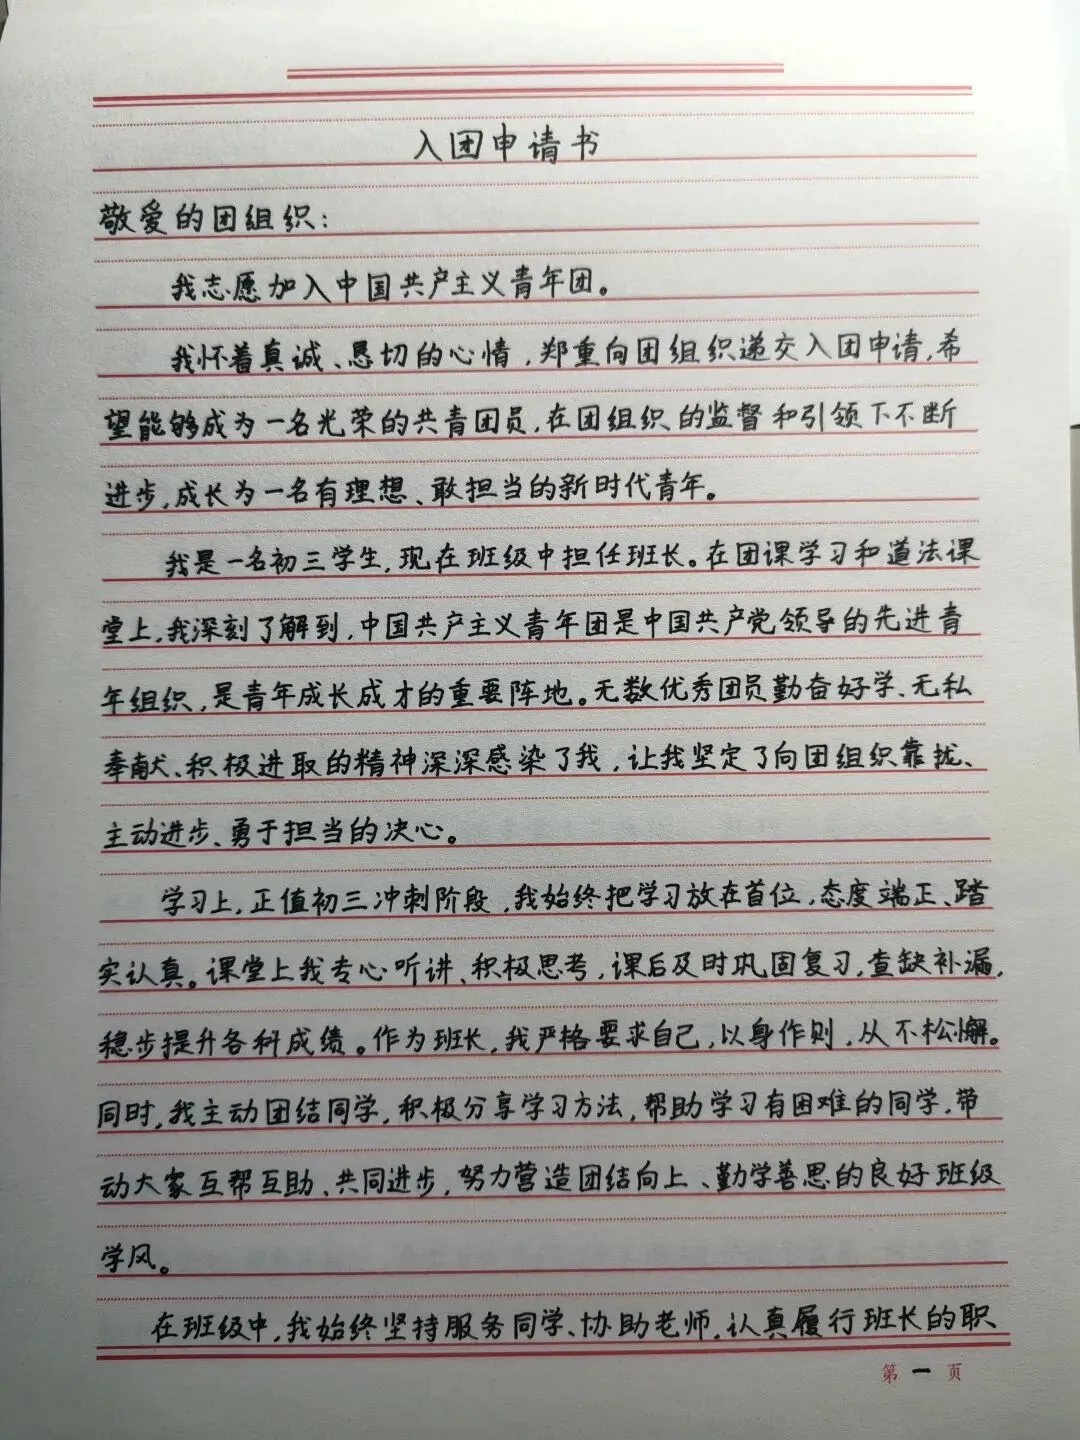 入团申请书
敬爱的团组织：
我志愿加入中国共产主义青年团。
我怀着真诚、恳切的心情，郑重向团组织递交入团申请，希
望能够成为一名光荣的共青团员，在团组织的监督和引领下不断
进步，成长为一名有理想、敢担当的新时代青年。
我是一名初三学生，现在班级中担任班长。在团课学习和道法课
堂上，我深刻了解到，中国共产主义青年团是中国共产党领导的先进青
年组织，是青年成长成才的重要阵地。无数优秀团员勤奋好学、无私
奉献、积极进取的精神深深感染了我，让我坚定了向团组织靠拢、
主动进步、勇于担当的决心。
学习上，正值初三冲刺阶段，我始终把学习放在首位，态度端正、踏
实认真。课堂上我专心听讲、积极思考，课后及时巩固复习，查缺补漏，
稳步提升各科成绩。作为班长，我严格要求自己，以身作则，从不松懈。
同时，我主动团结同学，积极分享学习方法，帮助学习有困难的同学，带
动大家互帮互助、共同进步，努力营造团结向上、勤学善思的良好班级
学风。
在班级中，我始终坚持服务同学、协助老师，认真履行班长的职
第一页